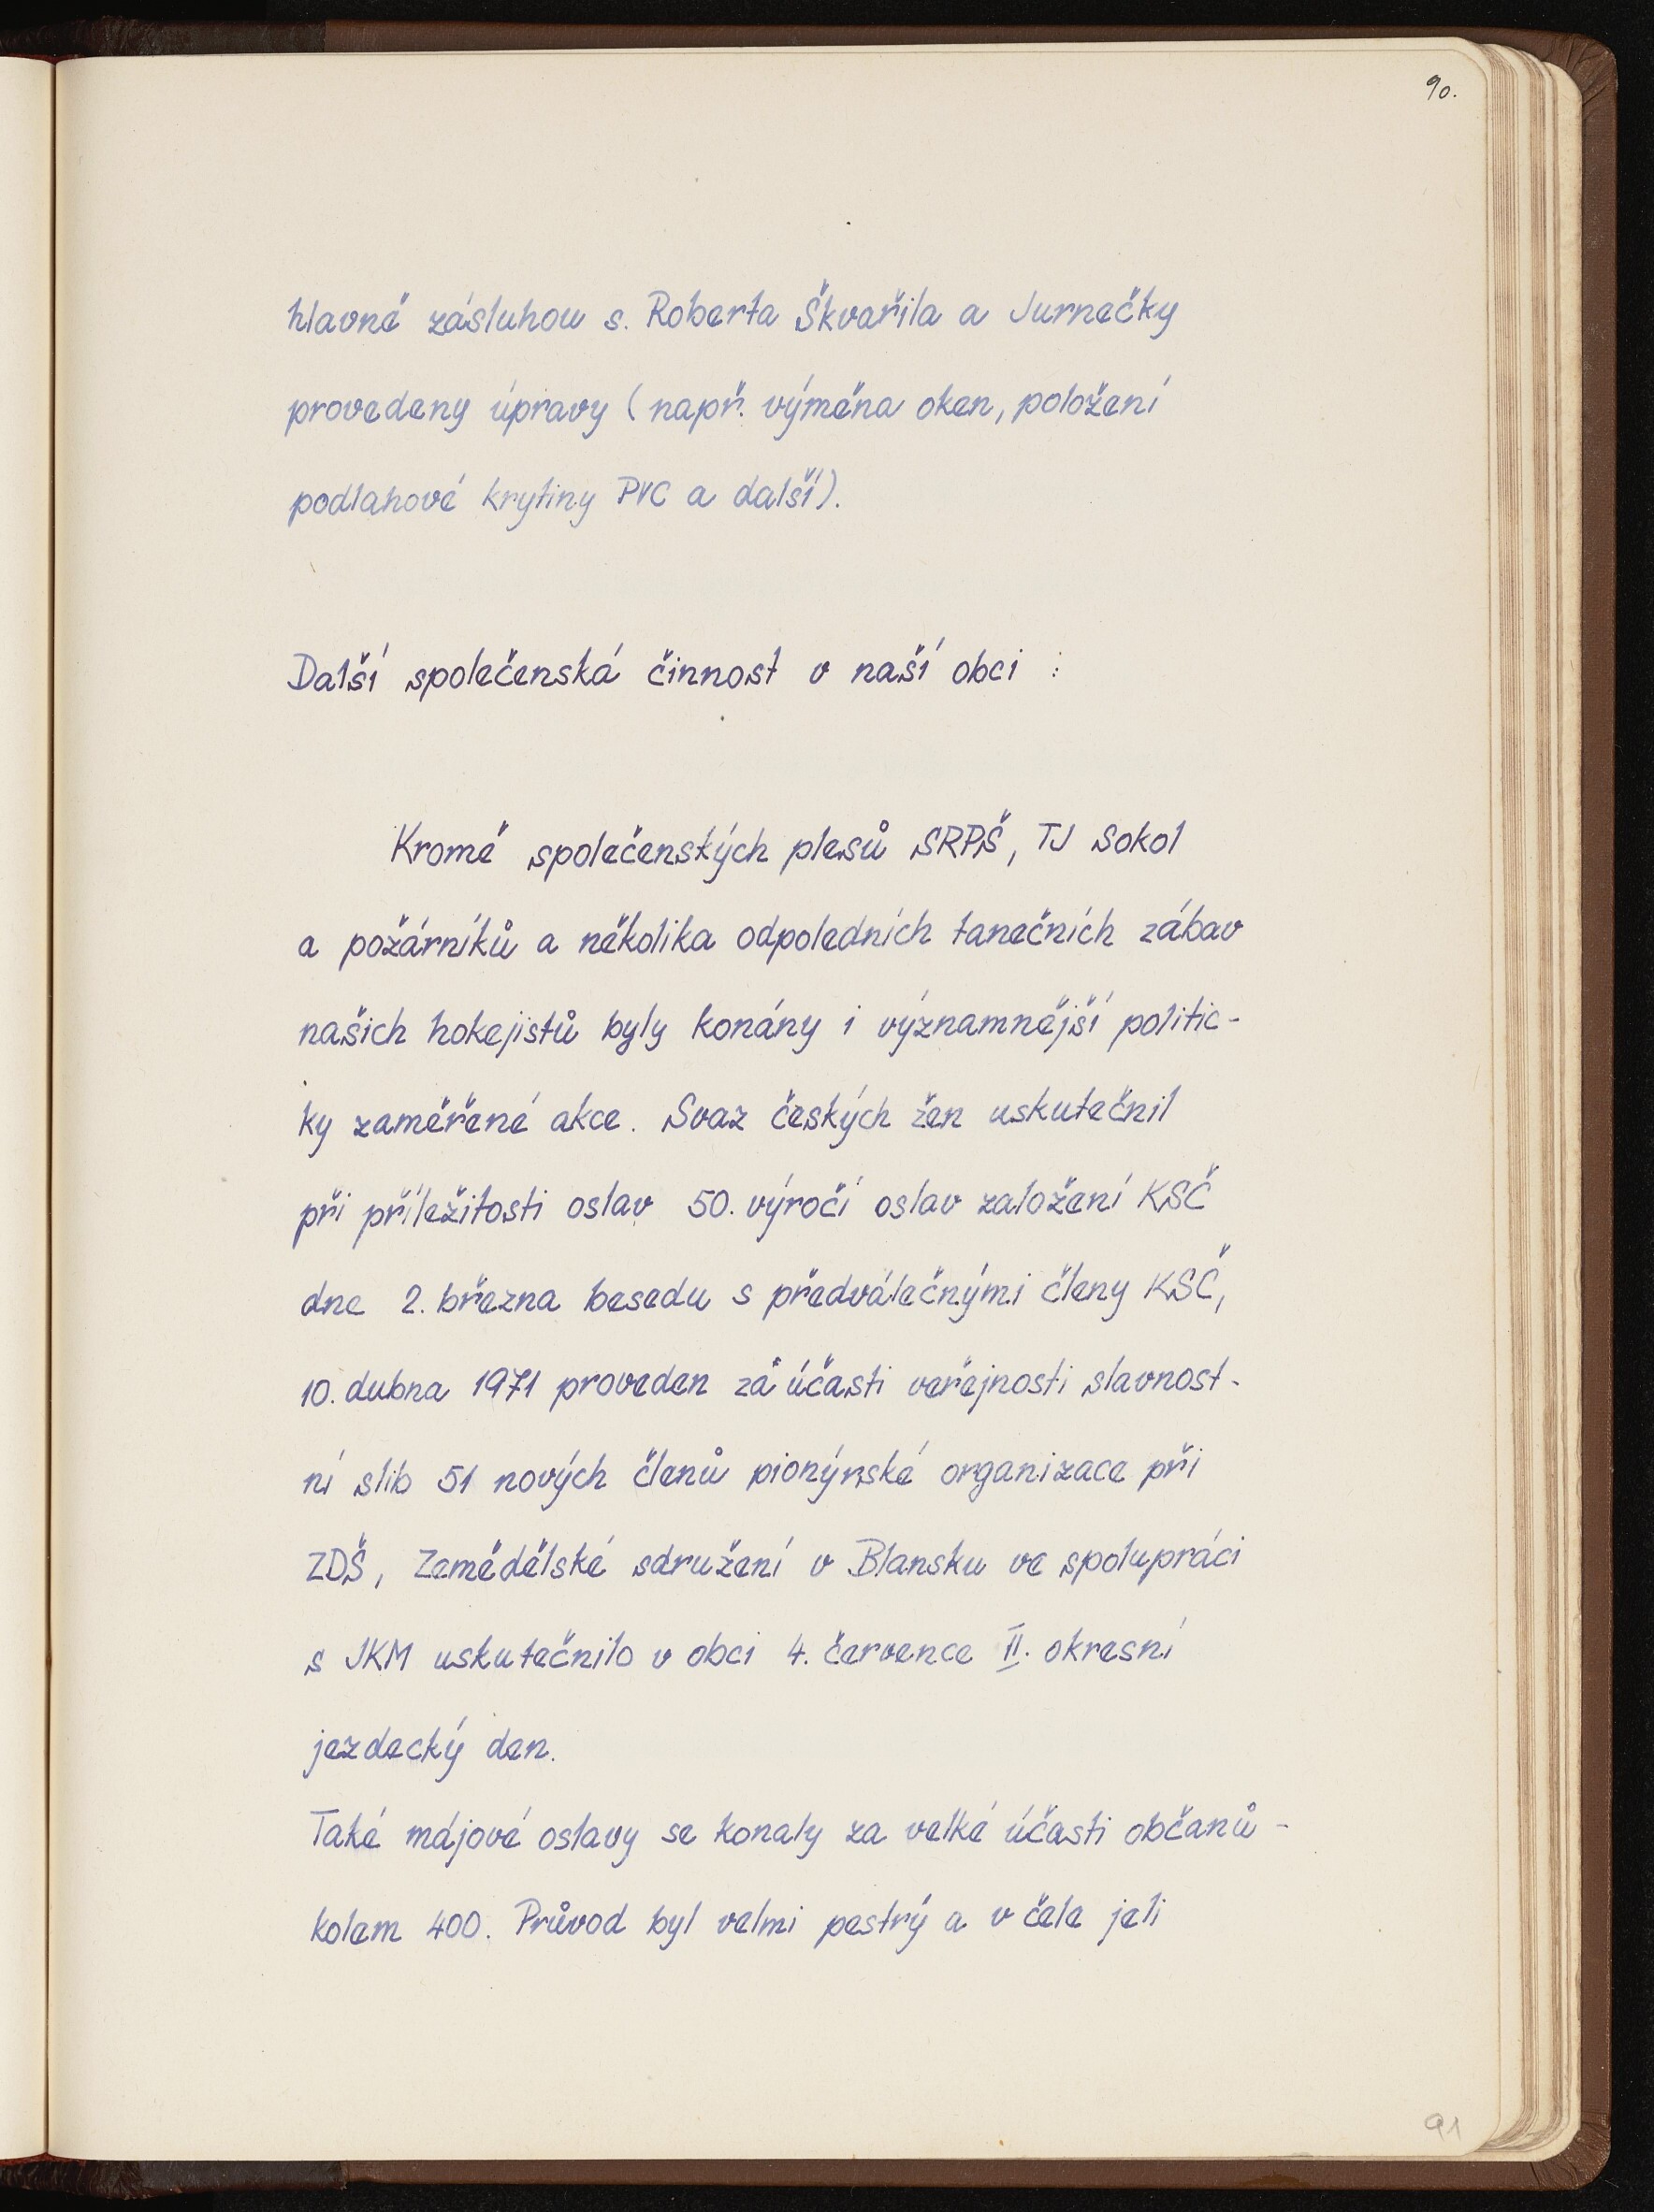 90.
hlavně zásluhou s. Roberta Škvařila a Jurnečky
provedeny úpravy (např. výměna oken, položení
podlahové krytiny PVC a další).
Další společenská činnost v naší obci :
Kromě společenských plesů SRPŠ, TJ Sokol
a požárníků a několika odpoledních tanečních zábav
našich hokejistů byly konány i významnější politic-
ky zaměřené akce. Svaz českých žen uskutečnil
při příležitosti oslav 50. výročí oslav založení KSČ
dne 2. března besedu s předválečnými členy KSČ,
10. dubna 1971 proveden za účasti veřejnosti slavnost-
ní slib 51 nových členů pionýrské organizace při
ZDŠ, Zemědělské sdružení v Blansku ve spolupráci
s JKM uskutečnilo v obci 4. července II. okresní
jezdecký den.
Také májové oslavy se konaly za velké účasti občanů -
kolem 400. Průvod byl velmi pestrý a v čele jeli
91